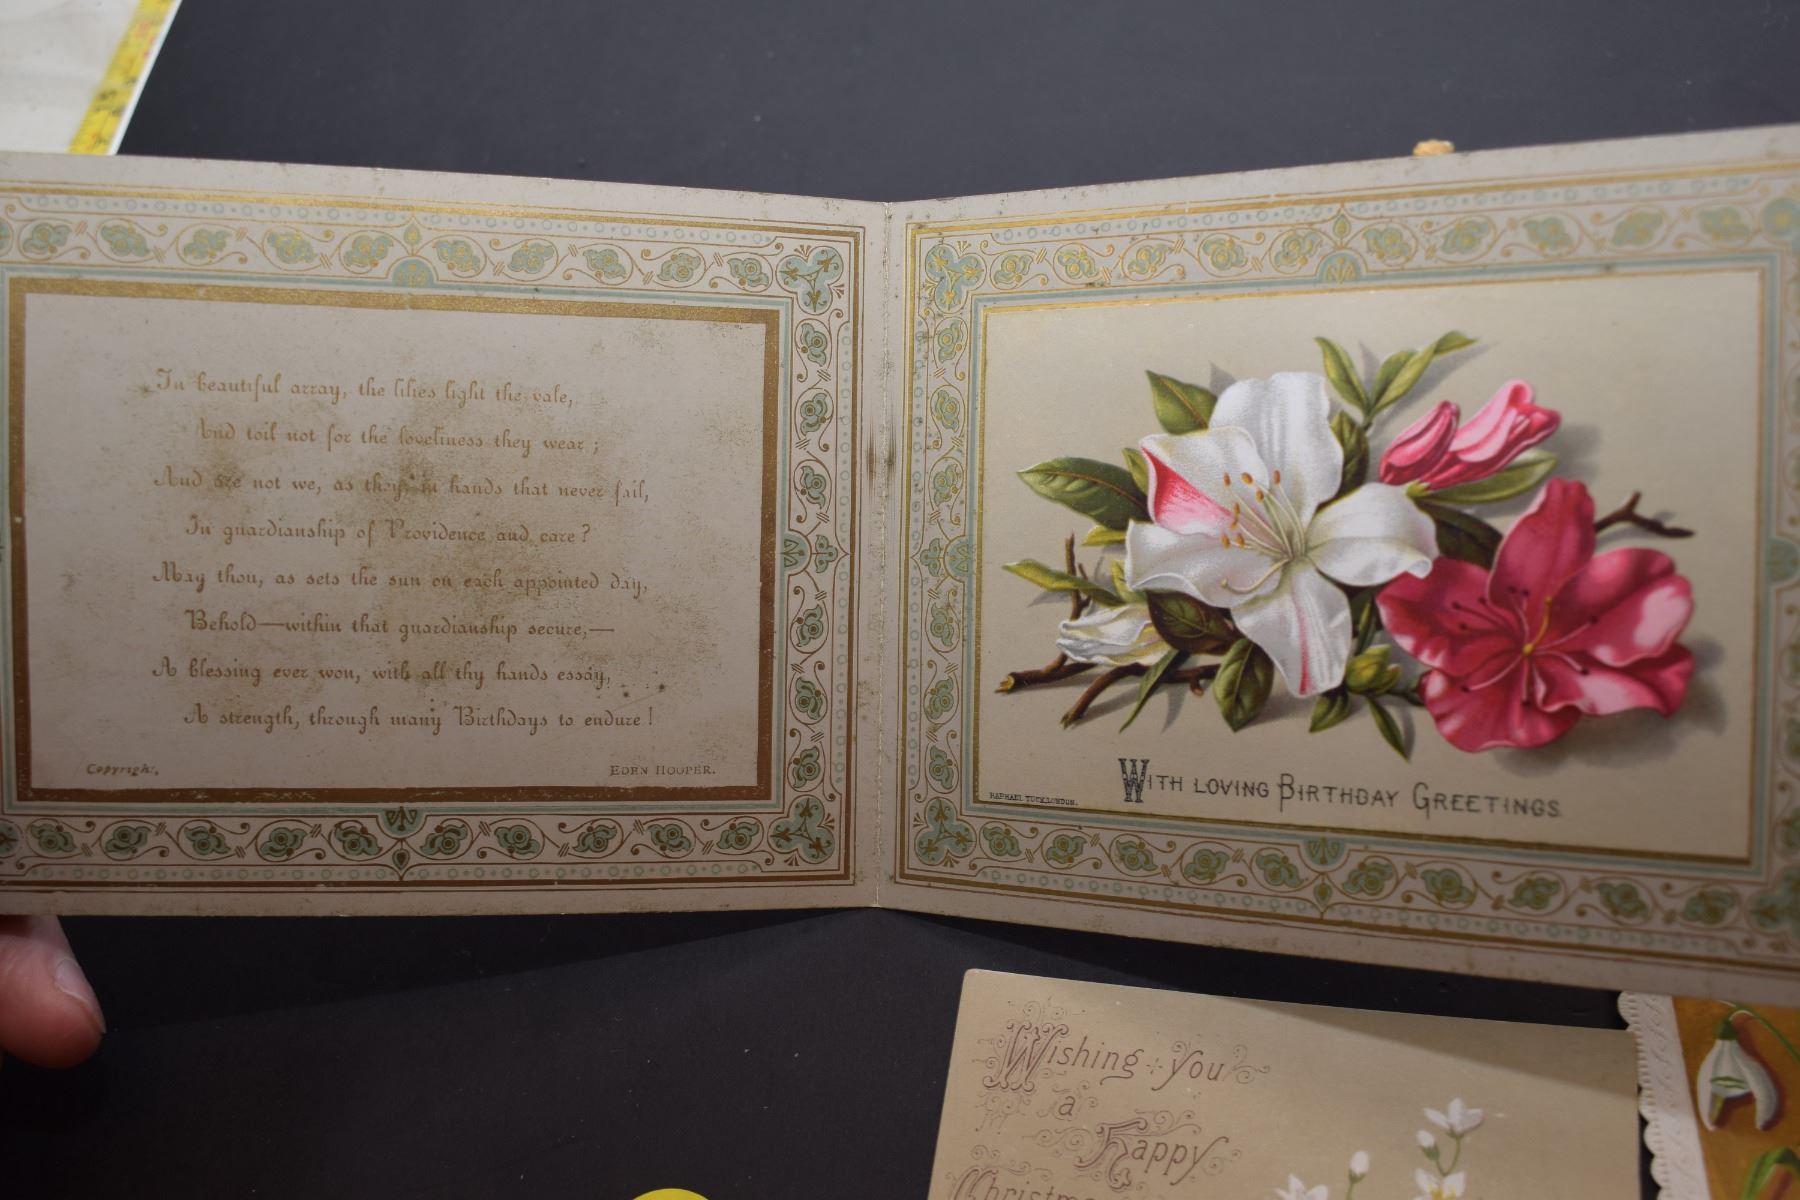 In beautiful array, the lilies light the vale,
And toil not for the loveliness they wear;
And are not we, as they, in hands that never fail,
In guardianship of Providence and care?
May thou, as sets the sun on each appointed day,
Behold—within that guardianship secure,—
A blessing ever won, with all thy hands essay,
A strength, through many Birthdays to endure!
Copyright.
EDEN HOOPER.
RAPHAEL TUCK, LONDON.
WITH LOVING BIRTHDAY GREETINGS.
Wishing you
a
Happy